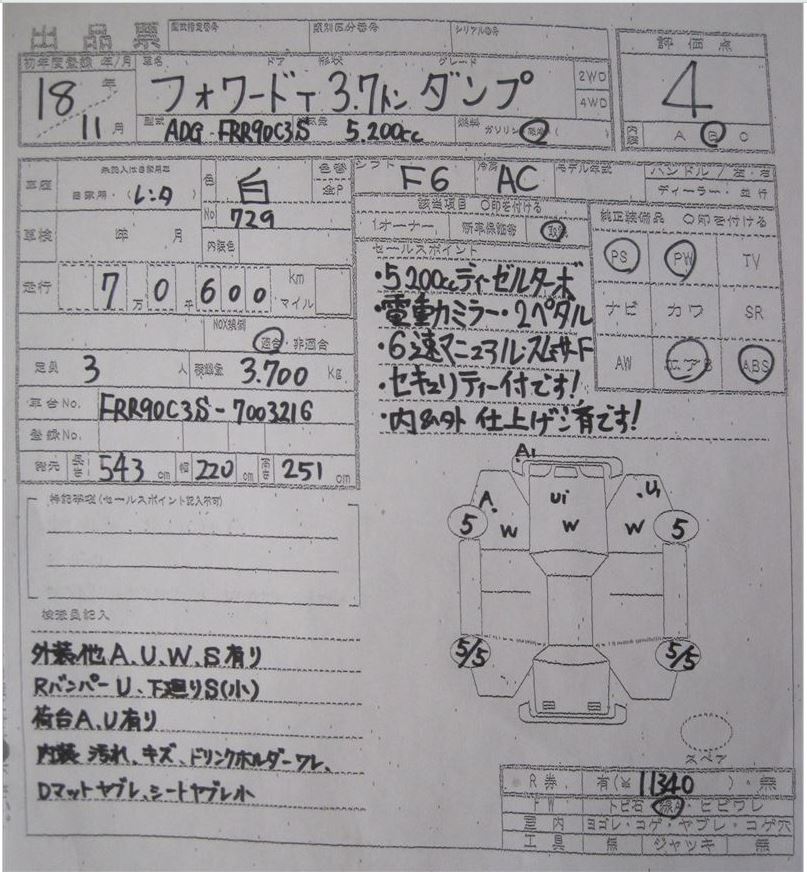 出品票
型式指定番号 類別区分番号 シリアルNO
初年度登録 年/月 車名 ドア 形状 グレード
18年 11月 フォワードT 3.7トン ダンプ 2WD 4WD
型式 ADG-FRR90C3S 5.200cc 燃料 ガソリン
評価点
4
内装 A B C
車歴 自家用・(レンタ)
色 白 色替
No 729 内装色
シフト F6 冷房 AC モデル年式 ハンドル/左・右
ディーラー・並行
車検 年 月
該当項目 〇印を付ける
1オーナー 新車保証書
純正装備品 〇印を付ける
PS PW TV
ナビ カワ SR
AW エアB ABS
走行 7万0千600 km マイル
NOX規制 適合・非適合
定員 3人 積載量 3.700 Kg
車台No. FRR90C3S-7003216
登録No.
諸元 長さ 543 cm 幅 220 cm 高さ 251 cm
セールスポイント
・5200ccディーゼルターボ
・電動カミラー・2ペダル
・6速マニュアルスムサード
・セキュリティー付です!
・内&外 仕上げ済有です!
特記事項(セールスポイント記入不可)
検査員記入
外装他 A、U、W、S有り
Rバンパー U、下廻りS(小)
荷台A、U有り
内装 汚れ、キズ、ドリンクホルダーワレ、
Dマットヤブレ、シートヤブレ小
A1
A U1 U1
5 W W W 5
5/5 5/5
スペア
R券 有(¥ 11340 )・無
FW トビ石・線A・ヒビワレ
室内 ヨゴレ・コゲ・ヤブレ・コゲ穴
工具 無 ジャッキ 無